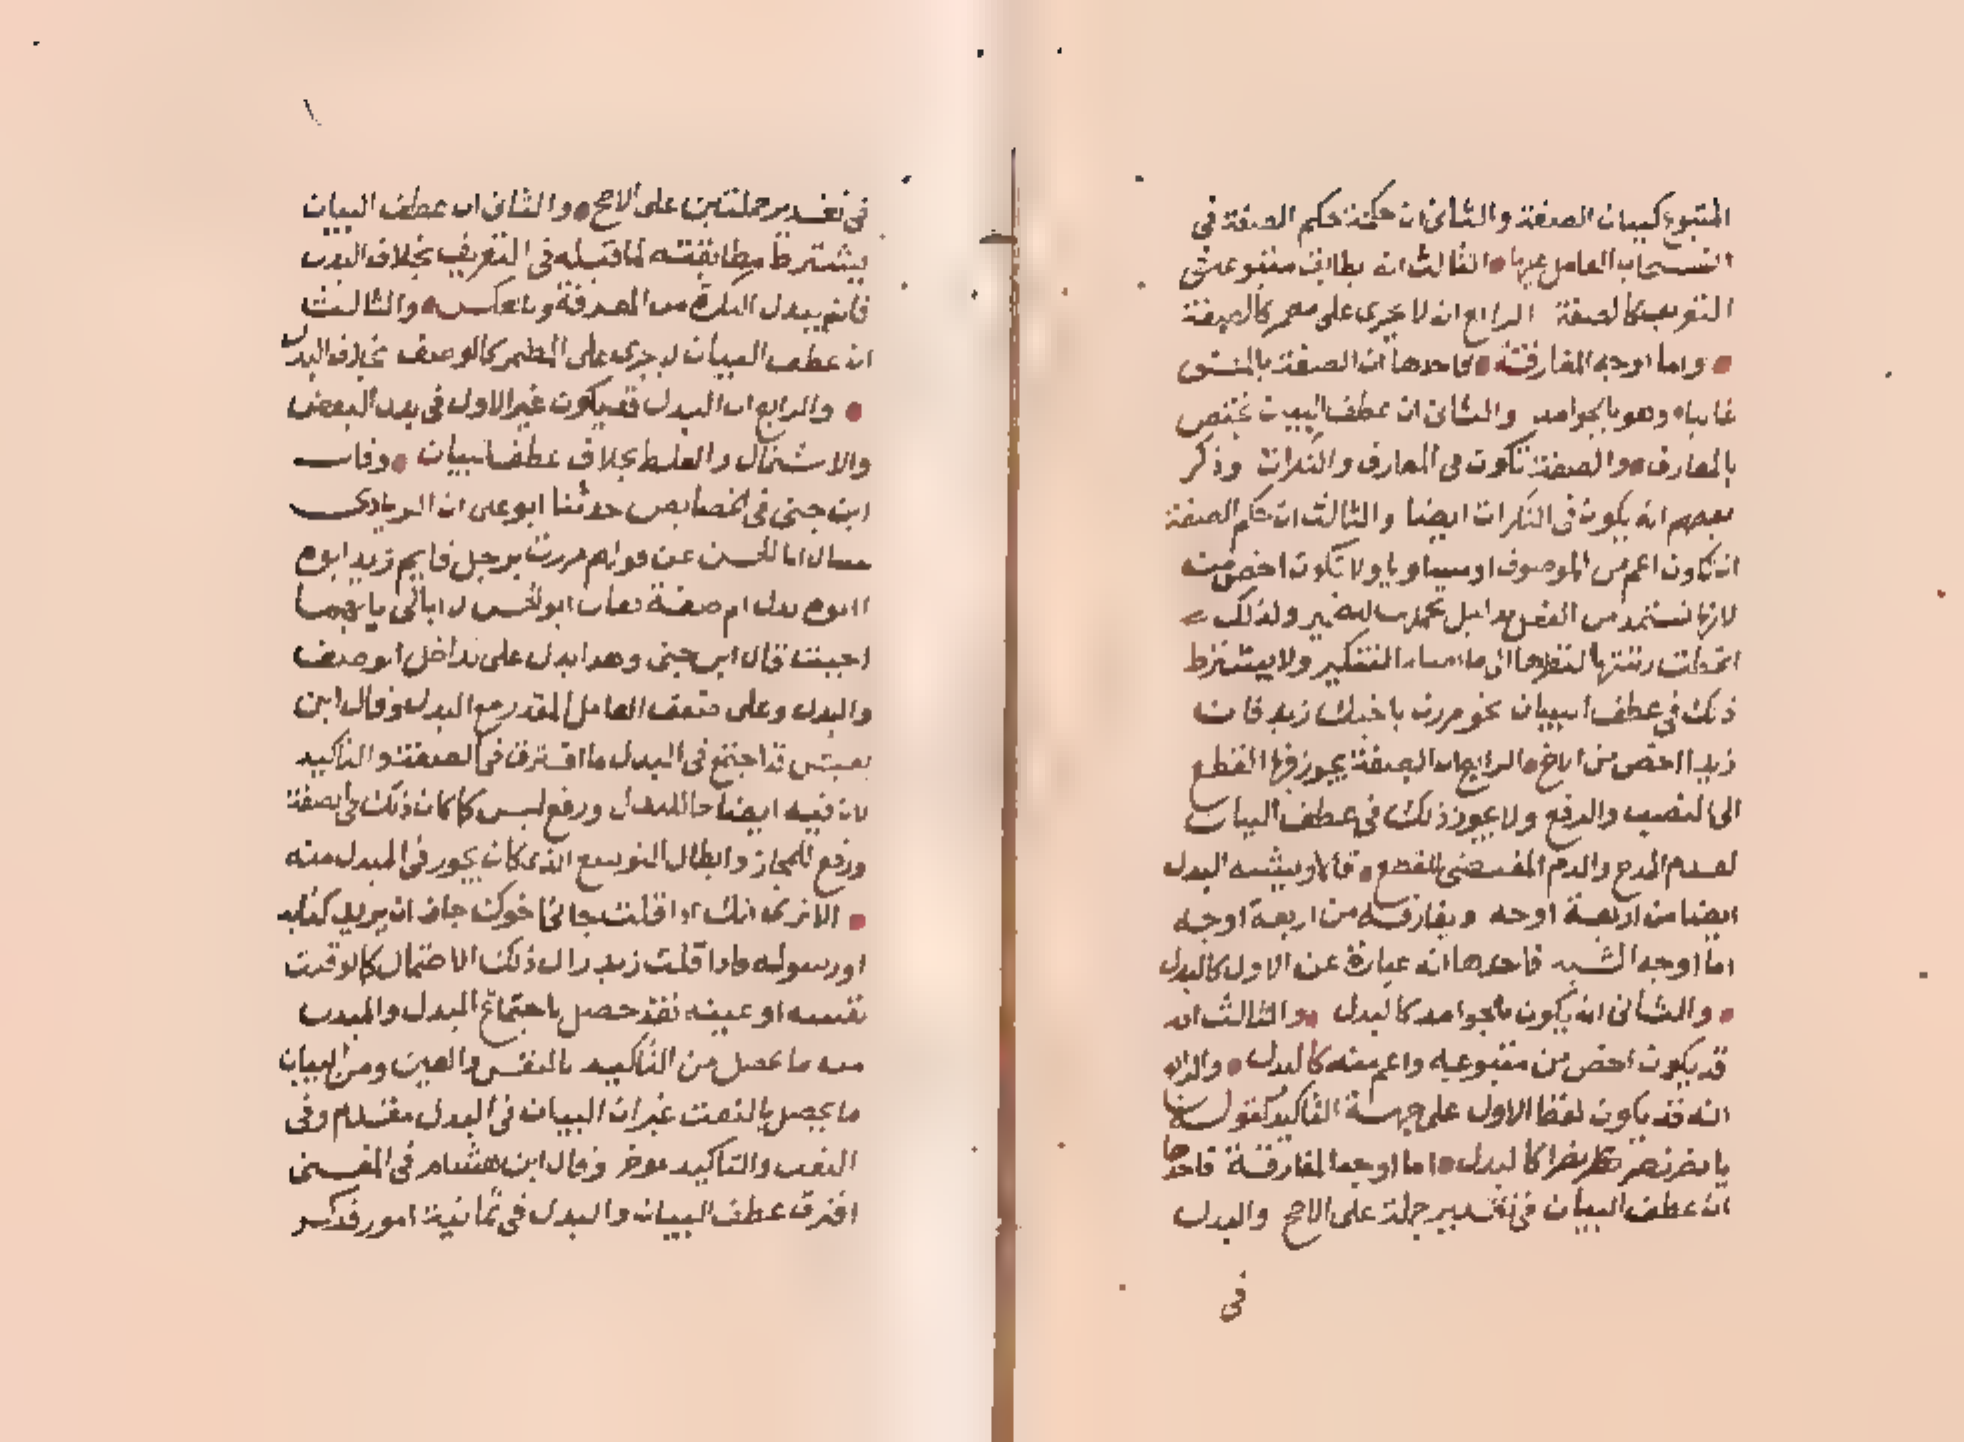 المتبوع كبيان الصفة والثاني ان حكمه حكم الصفة في
انسحاب العامل عليها والثالث انه يطابق متبوعه في
التعريف كالصفة الرابع انه لا يجري على مضمر كالصفة
واما اوجه المفارقة فاحدها ان الصفة بالمشتق
غالبا وهو بالجوامد والثاني ان عطف البيان يختص
بالمعارف والصفة تكون في المعارف والنكرات وذكر
بعضهم انه يكون في النكرات ايضا والثالث ان حكم الصفة
ان تكون اعم من الموصوف او مساويا ولا تكون اخص منه
لانها تستمد من الفعل ولذلك
انحطت رتبتها لنظرها الى ما التنكير ولا يشترط
ذلك في عطف البيان نحو مررت باخيك زيد فان
زيدا اخص من اخ والرابع ان الصفة يجوز فيها القطع
الى النصب والرفع ولا يجوز ذلك في عطف البيان
لعدم المدح والذم المقتضي للقطع قال ويشبه البدل
ايضا من اربعة اوجه ويفارقه من اربعة اوجه
اما اوجه الشبه فاحدها انه عبارة عن الاول كالبدل
والثاني انه يكون بالجوامد كالبدل والثالث انه
قد يكون اخص من متبوعه واعم منه كالبدل والرابع
انه قد يكون لفظ الاول على جهة التاكيد كقوله
يا نصر نصر نصرا كالبدل واما اوجه المفارقة فاحدها
ان عطف البيان في تقدير جملة على الاصح والبدل
في
في تقدير جملتين على الاصح والثاني ان عطف البيان
يشترط مطابقته لما قبله في التعريف بخلاف البدل
فانه يبدل النكرة من المعرفة وبالعكس والثالث
ان عطف البيان لا يجري على المضمر كالوصف بخلاف البدل
والرابع ان البدل قد يكون غير الاول في بدل البعض
والاشتمال والغلط بخلاف عطف البيان وقال
ابن جني في الخصايص حدثنا ابو علي ان الزيادي
سال ابا الحسن عن قولهم مررت برجل قايم زيد ابوه
اابوه بدل ام صفة فقال ابو الحسن لا ابالي بايهما
اجبت قال ابن جني وهذا يدل على تداخل الوصف
والبدل وعلى ضعف العامل المقدر مع البدل وقال ابن
يعيش قد اجتمع في البدل ما افترق في الصفة والتاكيد
لان فيه ايضاحا للمبدل ورفع لبس كما كان ذلك في الصفة
ورفع المجاز وابطال التوسع الذي كان يجوز في المبدل منه
الا ترى انك اذا قلت جاني اخوك جاز ان يريد كتابه
او رسوله فاذا قلت زيد زال ذلك الاحتمال كما لو قلت
نفسه او عينه فقد حصل باجتماع البدل والمبدل
منه ما يحصل من التاكيد بالنفس والعين ومن البيان
ما يحصل بالنعت غير ان البيان في البدل مقدم وفي
النعت والتاكيد موخر وقال ابن هشام في المغني
افترق عطف البيان والبدل في ثمانية امور فذكر